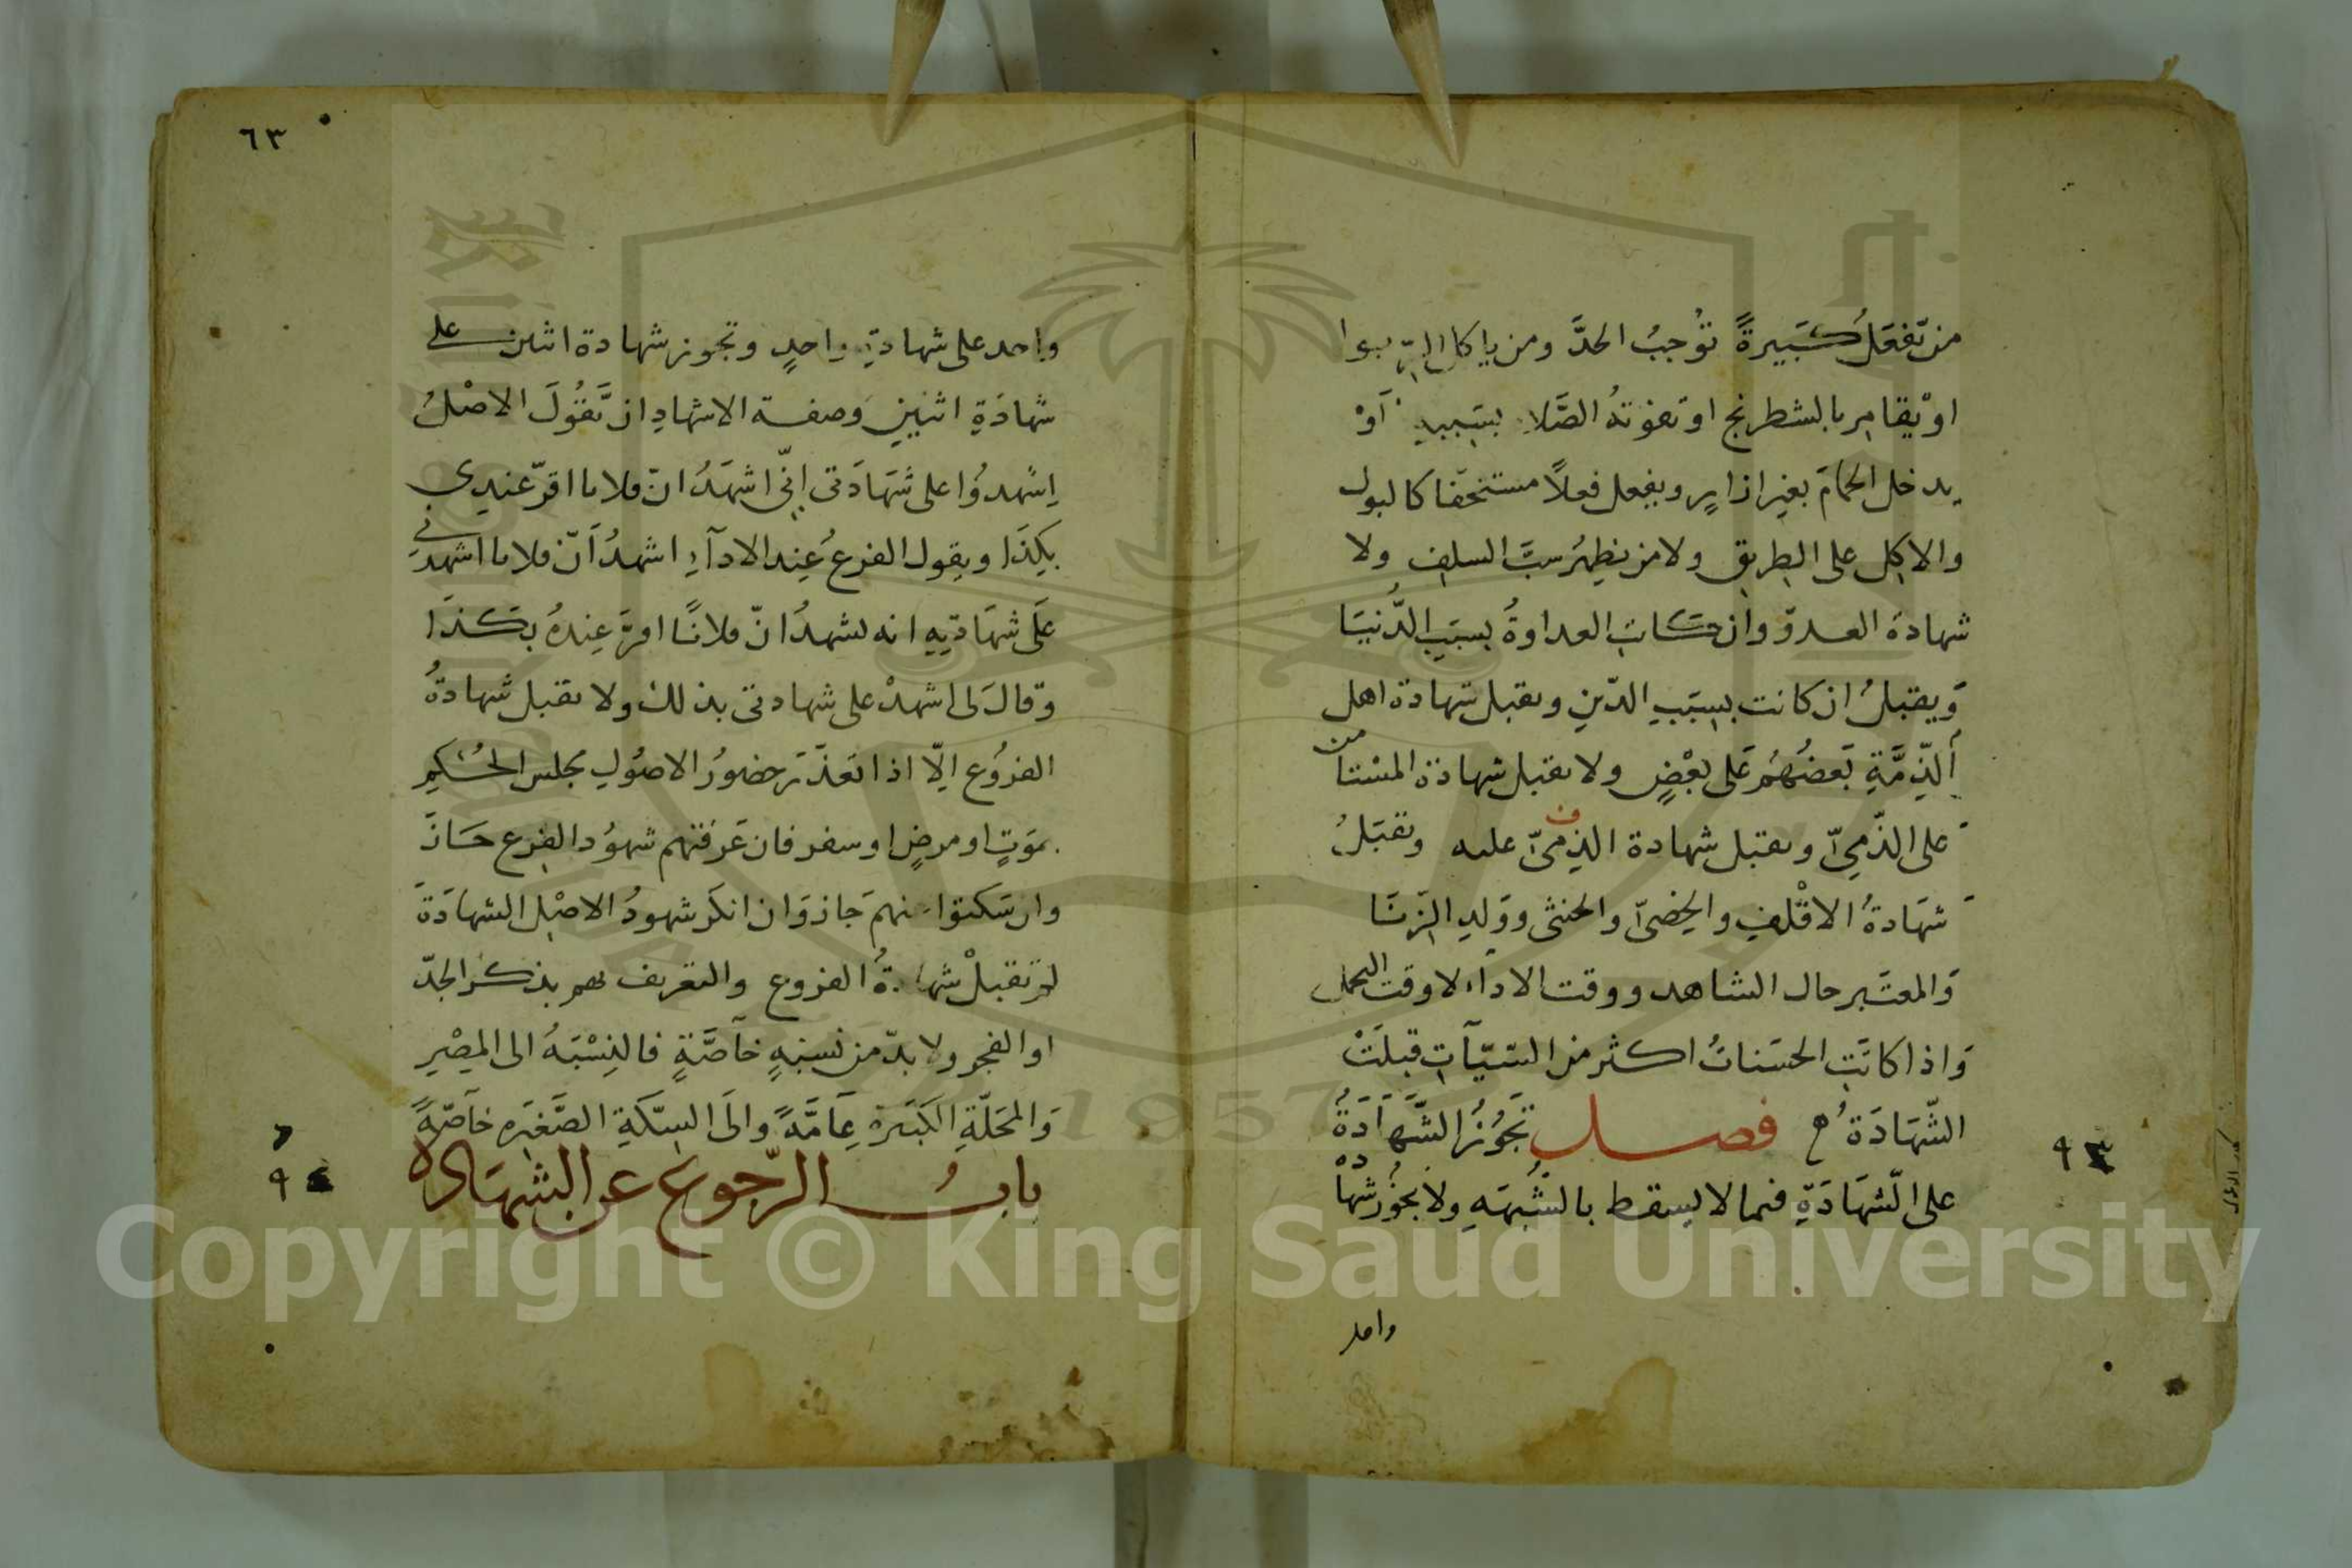 من تفعل كَبَيرةً تُوجبُ الحدَّ ومن ياكل الرّبوا
اوْ يقامر بالشطرنج او تفوتهُ الصَّلاة بسَببهِ اَوْ
يدخل الحمامَ بغير ازارٍ ويفعل فعلاً مستخفا كالبول
والاكل على الطريق ولا من يظهرُ سبَّ السلف ولا
شهادة العدوّ وان كانت العداوةُ بسبَبِ الدُّنيَا
وَيقبلُ ان كانت بسبَبِ الدّينِ وىقبل شهادة اهل
اَلذِّمَّةِ بَعضُهُم عَلى بعْضٍ ولا ىقبل شهادة المستامن
على الذّميّ وىقبل شهادة الذميّ عليه وتقبَلُ
شهَادةُ الاقْلفِ والخصيّ والخنثى ووَلدِ الزّنَا
وَالمعتَبر حال الشاهد ووقت الاداء لا وقت التحمل
وَاذا كانَتِ الحسَناتُ اكثر من السّيّآتِ قبلَتْ
الشّهَادَةُ فصل تَجُوزُ الشَّهَادَةُ
على الشّهَادَةِ فيما لا يسقط بالشُّبهَةِ ولا يجُوزُ شهادة
واحد
٩٣
٦٣
واحد على شهادةِ واحدٍ وتجوز شهادة اثنين على
شهادَةِ اثنينِ وصفة الاشهادِ ان يَّقُولَ الاصْلُ
اِشهدُوا على شَهَادَتى اِنّى اشهَدُ انّ فلانا اقرّ عندي
بكذَا ويقول الفرعُ عِند الادآءِ اشهدُ اَنّ فلانا اشهدني
عَلَى شهَادَتِهِ انه يشهدُ انّ فلانًا اقرَّ عِندهُ بكَذَا
وقالَ لى اشهدْ على شهادتى بذلك ولا ىقبل شهادةُ
الفرُوع اِلّا اذا تعَذّرَ حضورُ الاصُولِ مجلس الحُكمِ
بموَتٍ او مرضٍ او سفر فان عَرفتهم شهوُد الفرع جَازَ
وان سَكتوا منهم جَاز وَان انكَر شهودُ الاصْل الشهادَةَ
لم تقبلْ شهادةُ الفروع والتعريف يتم بذكر الجدّ
او الفخذ ولا بدّ من نسبةٍ خاصَّةٍ فالنِسْبَةُ الى المِصْرِ
وَالمحَلّةِ الكَبيرة عَامَّةً والَى السِكّةِ الصَّغيرهِ خاصّةً
بابُ الرّجوع عن الشهَادة
٩٤